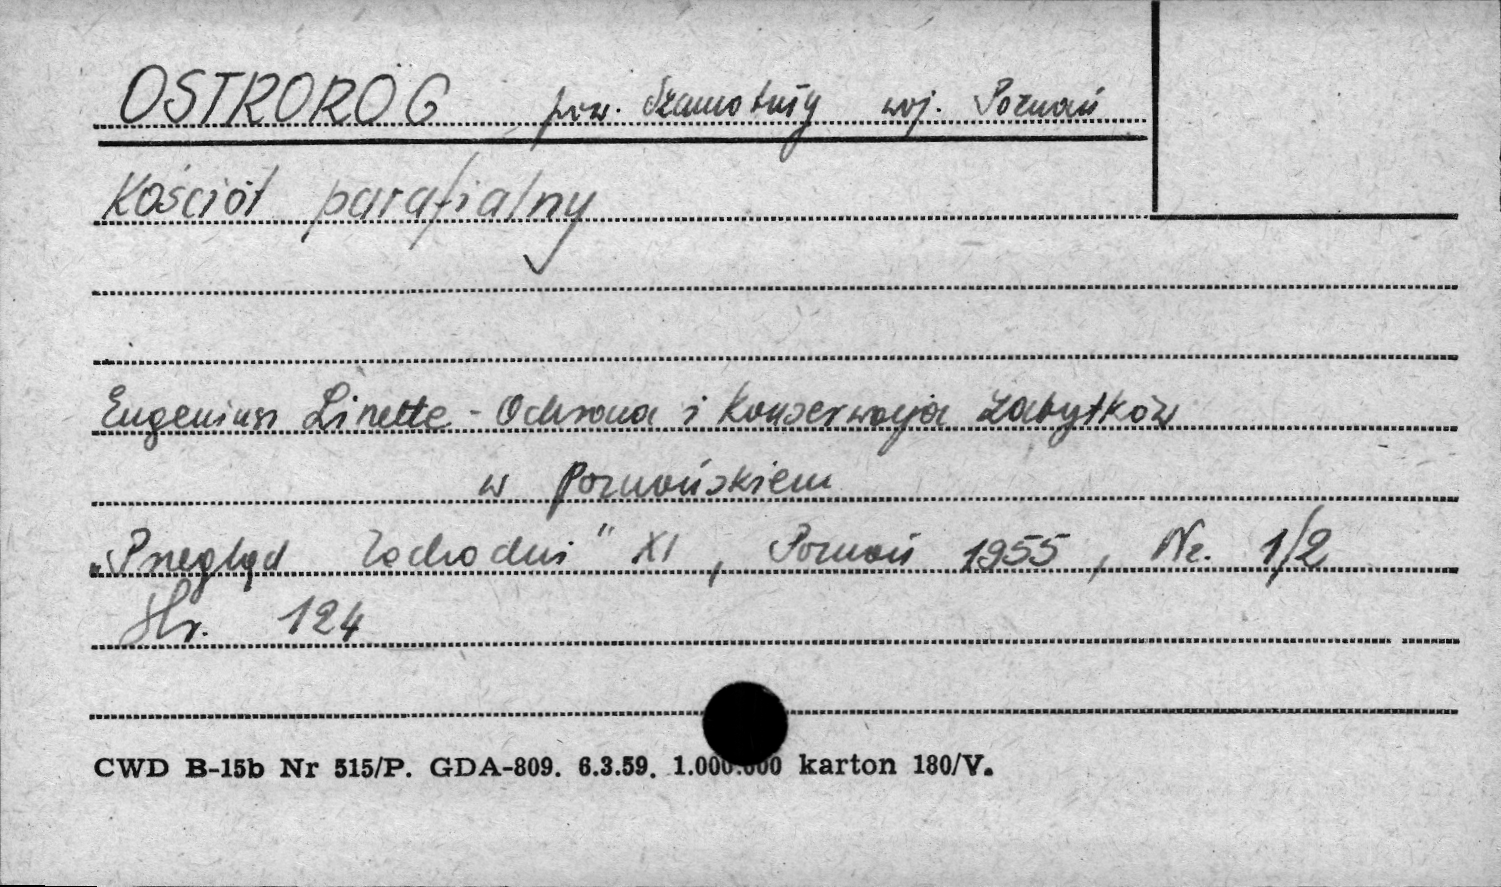 OSTRORÓG pow. Szamotuły woj. Poznań
Kościół parafialny
Eugeniusz Linette - Ochrona i konserwacja zabytków
w Poznańskiem
„Przegląd Zachodni" XI, Poznań 1955, Nr. 1/2
Str. 124
CWD B-15b Nr 515/P. GDA-809. 6.3.59. 1.000.000 karton 180/V.